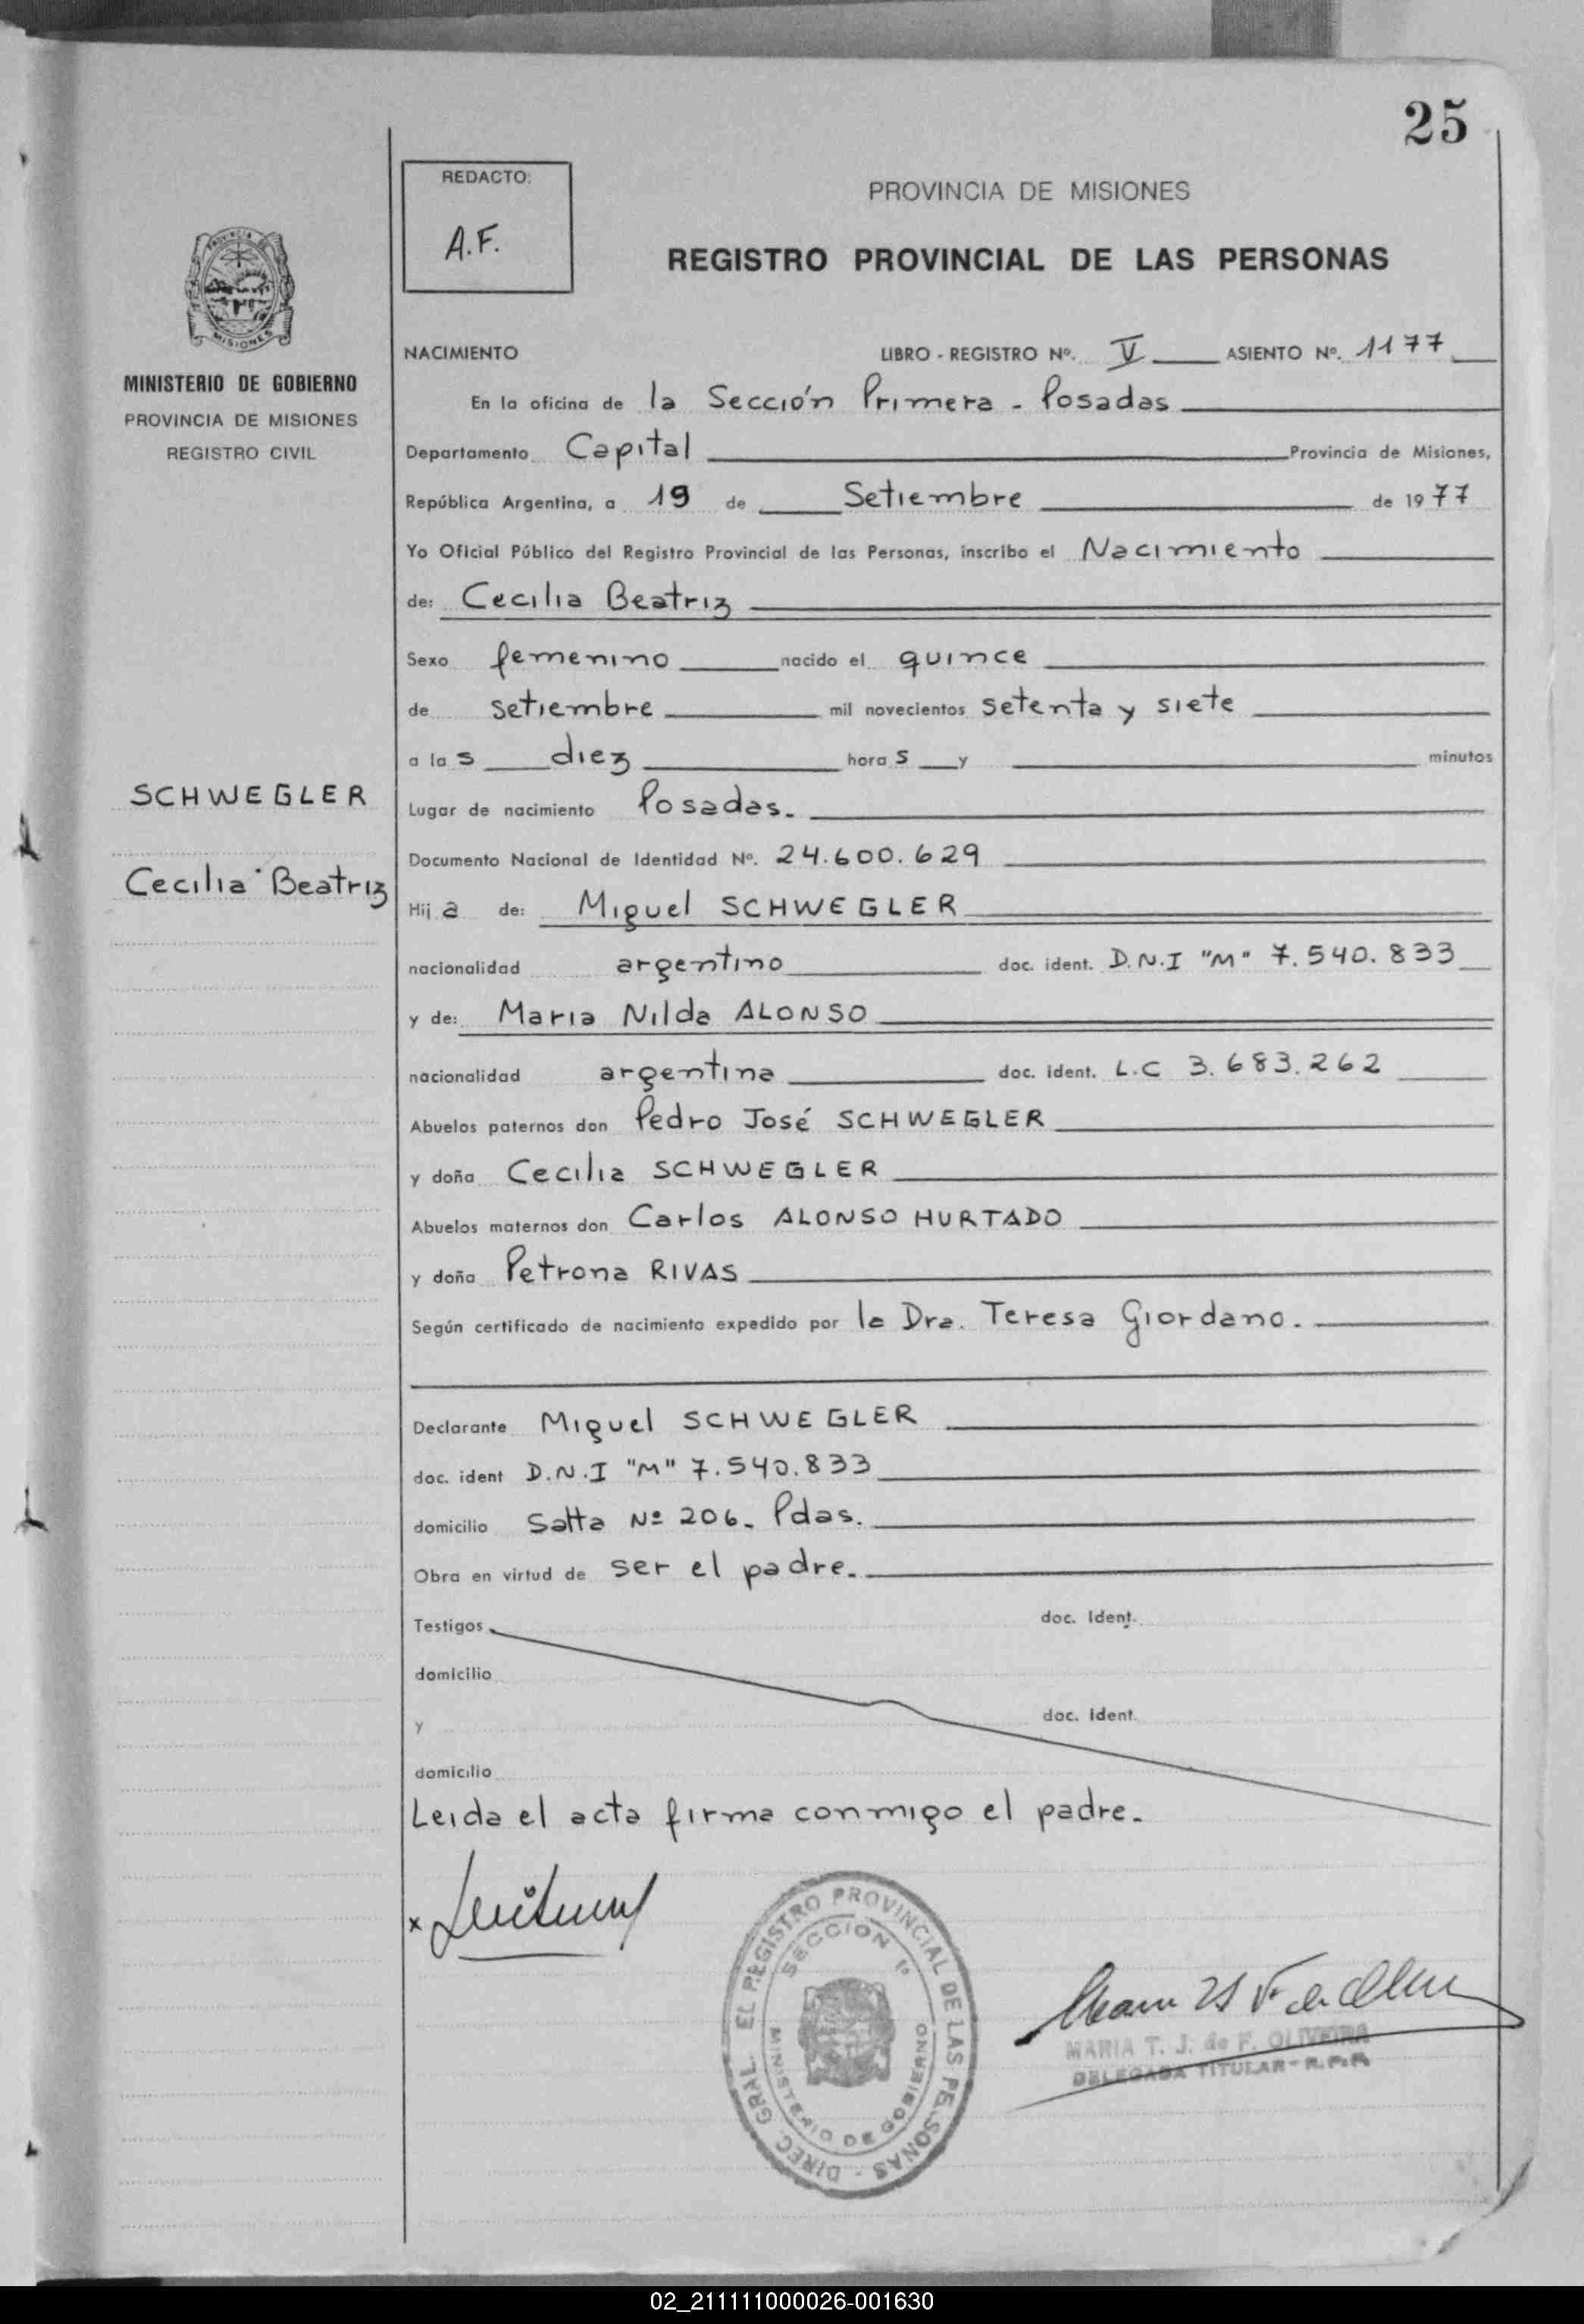 25
REDACTO:
A.F.
PROVINCIA DE MISIONES
REGISTRO PROVINCIAL DE LAS PERSONAS
PROVINCIA DE
MISIONES
MINISTERIO DE GOBIERNO
PROVINCIA DE MISIONES
REGISTRO CIVIL
SCHWEGLER
Cecilia Beatriz
NACIMIENTO LIBRO - REGISTRO Nº. V ASIENTO Nº. 1177
En la oficina de la Sección Primera - Posadas
Departamento Capital Provincia de Misiones,
República Argentina, a 19 de Setiembre de 1977
Yo Oficial Público del Registro Provincial de las Personas, inscribo el Nacimiento
de: Cecilia Beatriz
Sexo femenino nacido el quince
de setiembre mil novecientos setenta y siete
a las diez horas y minutos
Lugar de nacimiento Posadas.
Documento Nacional de Identidad Nº. 24.600.629
Hija de: Miguel SCHWEGLER
nacionalidad argentino doc. ident. D.N.I "M" 7.540.833
y de: Maria Nilda ALONSO
nacionalidad argentina doc. ident. L.C 3.683.262
Abuelos paternos don Pedro José SCHWEGLER
y doña Cecilia SCHWEGLER
Abuelos maternos don Carlos ALONSO HURTADO
y doña Petrona RIVAS
Según certificado de nacimiento expedido por la Dra. Teresa Giordano.
Declarante Miguel SCHWEGLER
doc. ident D.N.I "M" 7.540.833
domicilio Salta Nº 206. Pdas.
Obra en virtud de ser el padre.
Testigos doc. Ident.
domicilio
y doc. Ident.
domicilio
Leida el acta firma conmigo el padre.
x
DIREC. GRAL. EL REGISTRO PROVINCIAL DE LAS PERSONAS
SECCION 1ª
MINISTERIO DE GOBIERNO
MARIA T. J. de F. OLIVEIRA
DELEGADA TITULAR - R.P.P.
02_211111000026-001630